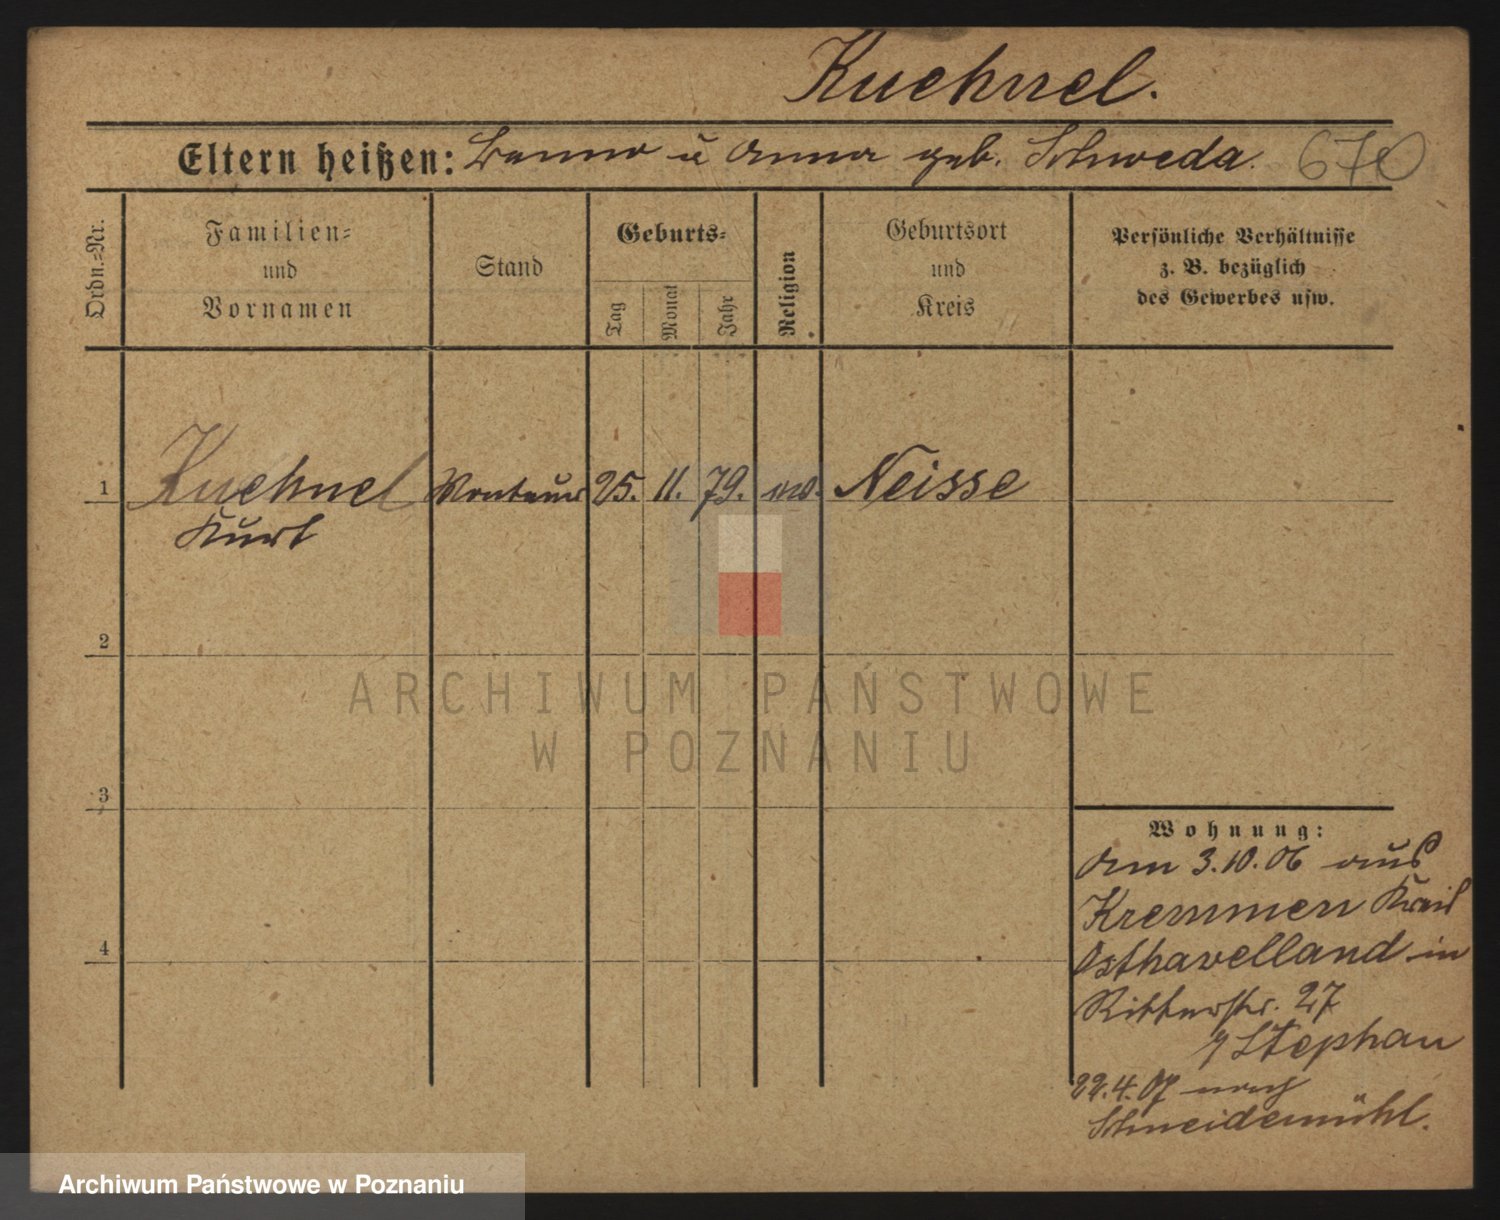 Kuehnel.
Eltern heißen: Benno u Anna geb. Schweda. 670
Ordn.=Nr.
Familien=
und
Vornamen
Stand
Geburts=
Tag
Monat
Jahr
Religion
Geburtsort
und
Kreis
Persönliche Verhältnisse
z. B. bezüglich
des Gewerbes usw.
1 Kuehnel Monteur 25. 11. 79. Neisse
Kurt
2
3
4
ARCHIWUM PAŃSTWOWE
W POZNANIU
Wohnung:
Am 3.10.06 aus
Kremmen Kreis
Osthavelland in
Ritterstr. 27
Stephan
22.4.07 nach
Schneidemühl.
Archiwum Państwowe w Poznaniu